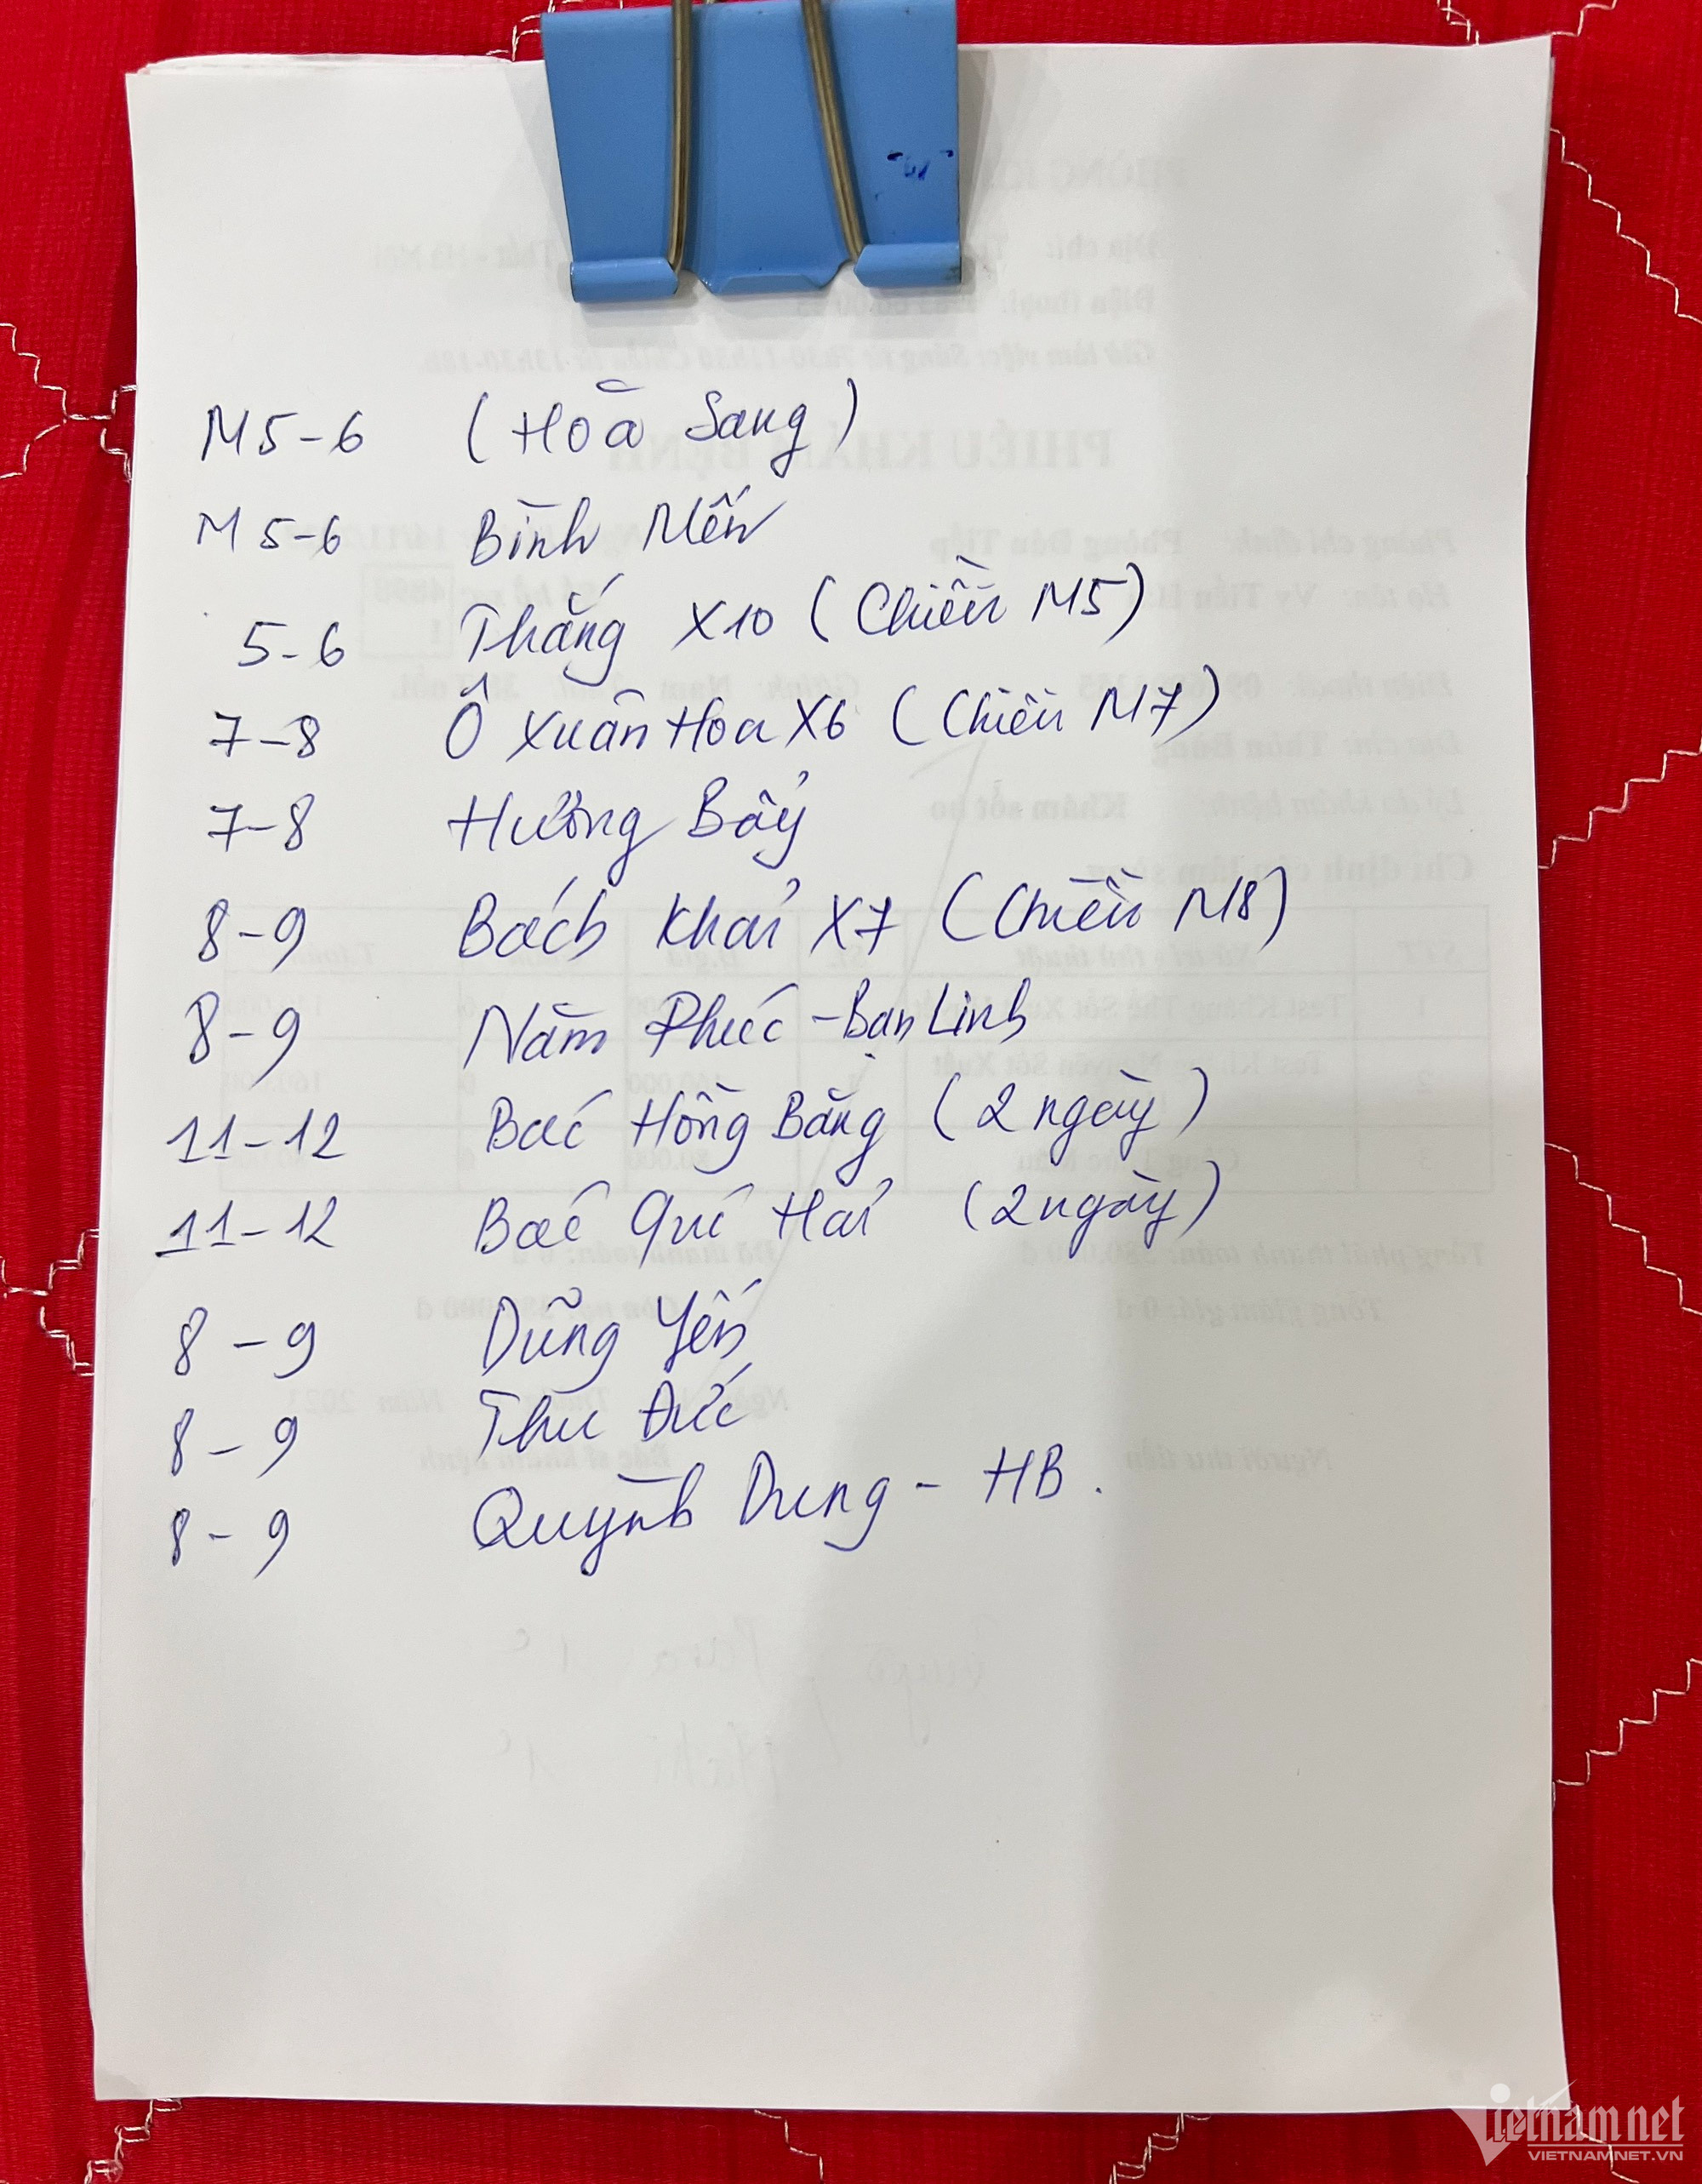 M5-6 (Hoà Sang)
M5-6 Bình Mến
5-6 Thắng X10 (Chiều M5)
7-8 Ô Xuân Hoa X6 (Chiều M7)
7-8 Hường Bẩy
8-9 Bách Khải X7 (Chiều M8)
8-9 Năm Phúc - Bạn Linh
11-12 Bác Hồng Bằng (2 ngày)
11-12 Bác Quí Hải (2 ngày)
8-9 Dũng Yến
8-9 Thu Đức
8-9 Quỳnh Dung - HB.
vietnamnet
VIETNAMNET.VN